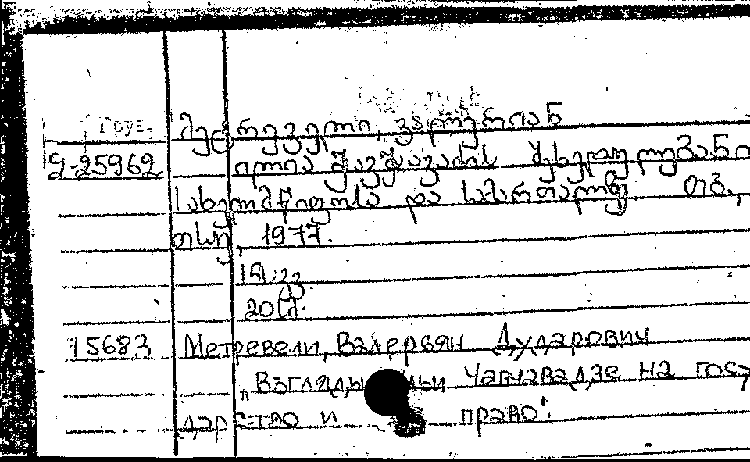 Груз.
მეტრეველი, ვალერიან
2-25962 ილია ჭავჭავაძის შეხედულებანი
სახელმწიფოსა და სამართალზე. თბ.,
თსუ, 1977.
20
15683 Метревели, Валерьян Дударович
„Взгляды Ильи Чавчавадзе на госу
дарство и право".